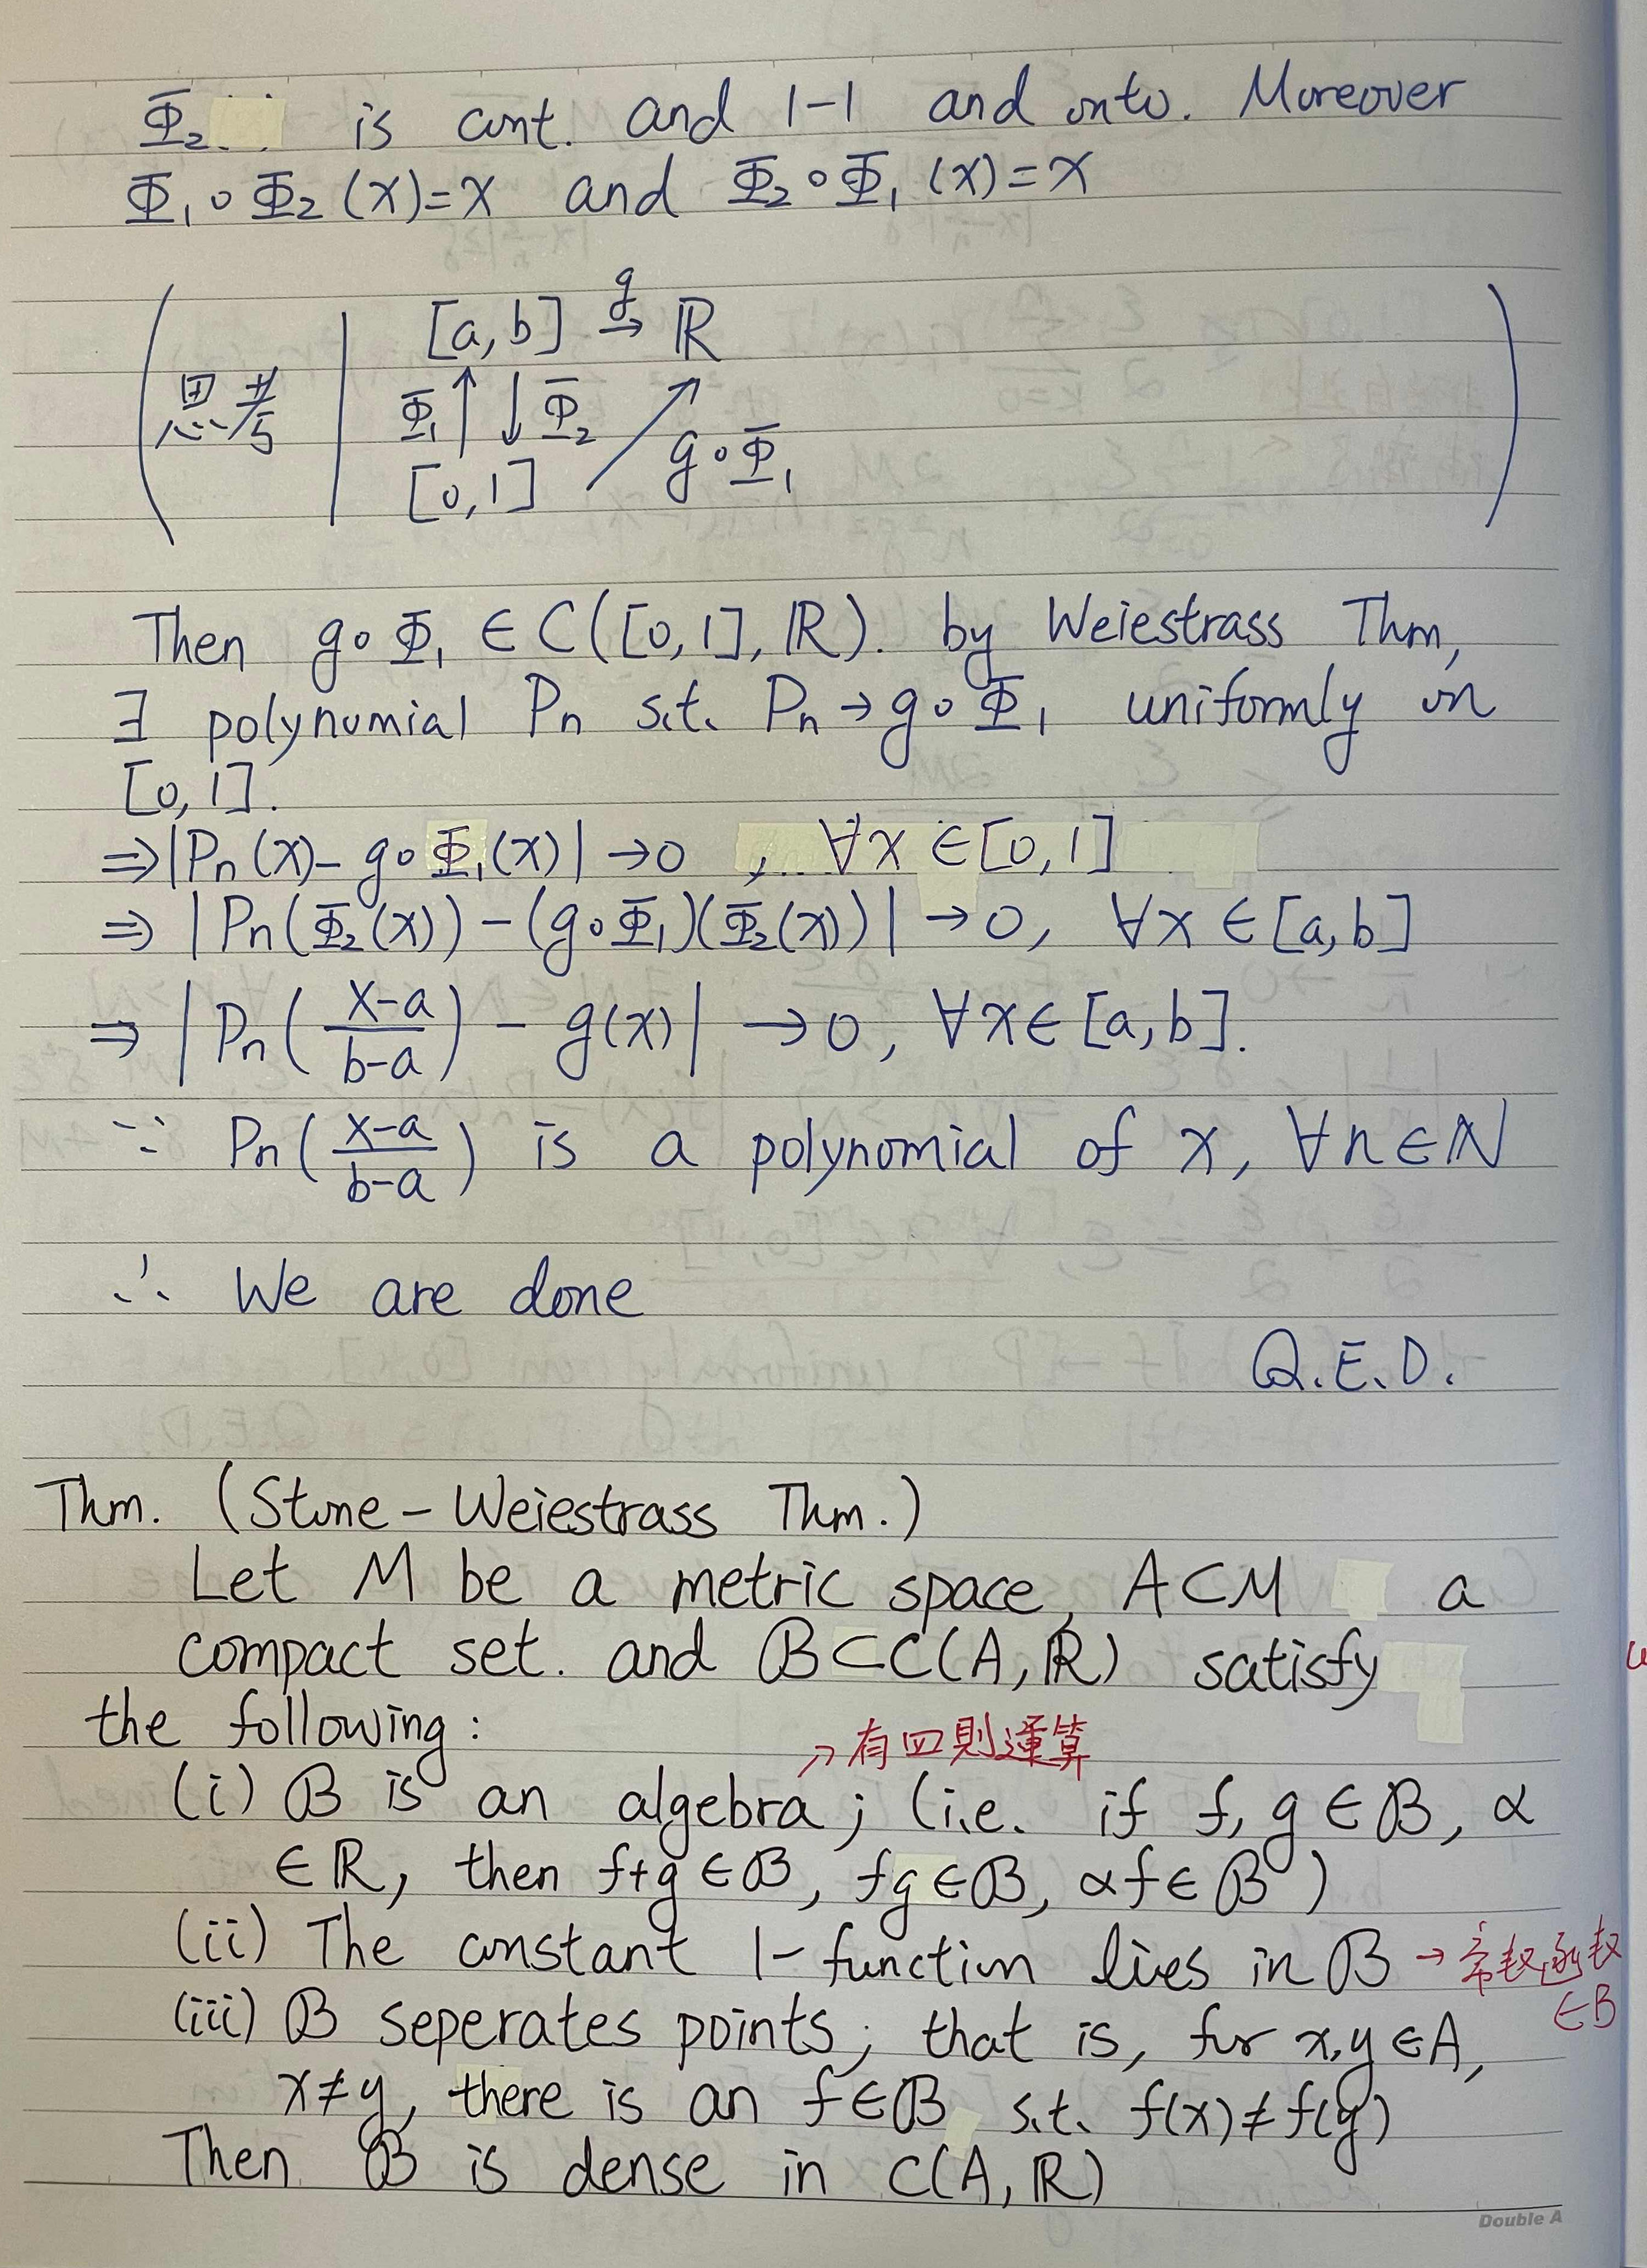 Φ₂ is cont. and 1-1 and onto. Moreover
Φ₁∘Φ₂(x)=x and Φ₂∘Φ₁(x)=x
[a,b] g→ ℝ
思考 Φ₁↑ ↓Φ₂ ↗ g∘Φ₁
[0,1]
Then g∘Φ₁ ∈ C([0,1],ℝ). by Weiestrass Thm,
∃ polynomial Pn s.t. Pn→g∘Φ₁ uniformly on
[0,1].
⇒|Pn(x)-g∘Φ₁(x)|→0 , ∀x∈[0,1]
⇒|Pn(Φ₂(x))-(g∘Φ₁)(Φ₂(x))|→0, ∀x∈[a,b]
⇒|Pn((x-a)/(b-a))-g(x)|→0, ∀x∈[a,b].
∵ Pn((x-a)/(b-a)) is a polynomial of x, ∀n∈ℕ
∴ We are done
Q.E.D.
Thm. (Stone-Weiestrass Thm.)
Let M be a metric space, A⊂M a
compact set. and B⊂C(A,ℝ) satisfy
the following:
→有四則運算
(i) B is an algebra; (i.e. if f, g∈B, α
∈ℝ, then f+g∈B, fg∈B, αf∈B)
(ii) The constant 1-function lives in B →常数函数
∈B
(iii) B seperates points; that is, for x,y∈A,
x≠y, there is an f∈B s.t. f(x)≠f(y)
Then B is dense in C(A,ℝ)
Double A